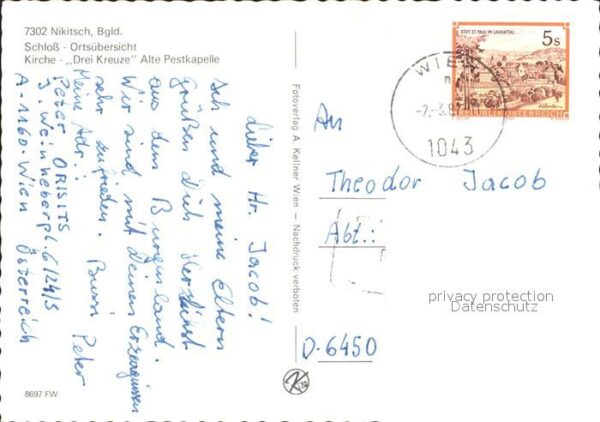 7302 Nikitsch, Bgld.
Schloß - Ortsübersicht
Kirche - „Drei Kreuze" Alte Pestkapelle
Lieber Hr. Jacob!
Ich und meine Eltern
grüßen Dich herzlichst
aus dem Burgenland.
Wir sind mit Deinen Erzeugnissen
sehr zufrieden. Bussi Peter
Meine Adr.:
Peter ORISITS
J. Weinheberpl. 6/24/3
A-1160-Wien Österreich
8697 FW
Fotoverlag A. Kellner Wien — Nachdruck verboten
STIFT ST. PAUL IM LAVANTTAL
5 S
REPUBLIK ÖSTERREICH
WIEN
1043
An
Theodor Jacob
Abt.:
privacy protection
Datenschutz
D-6450